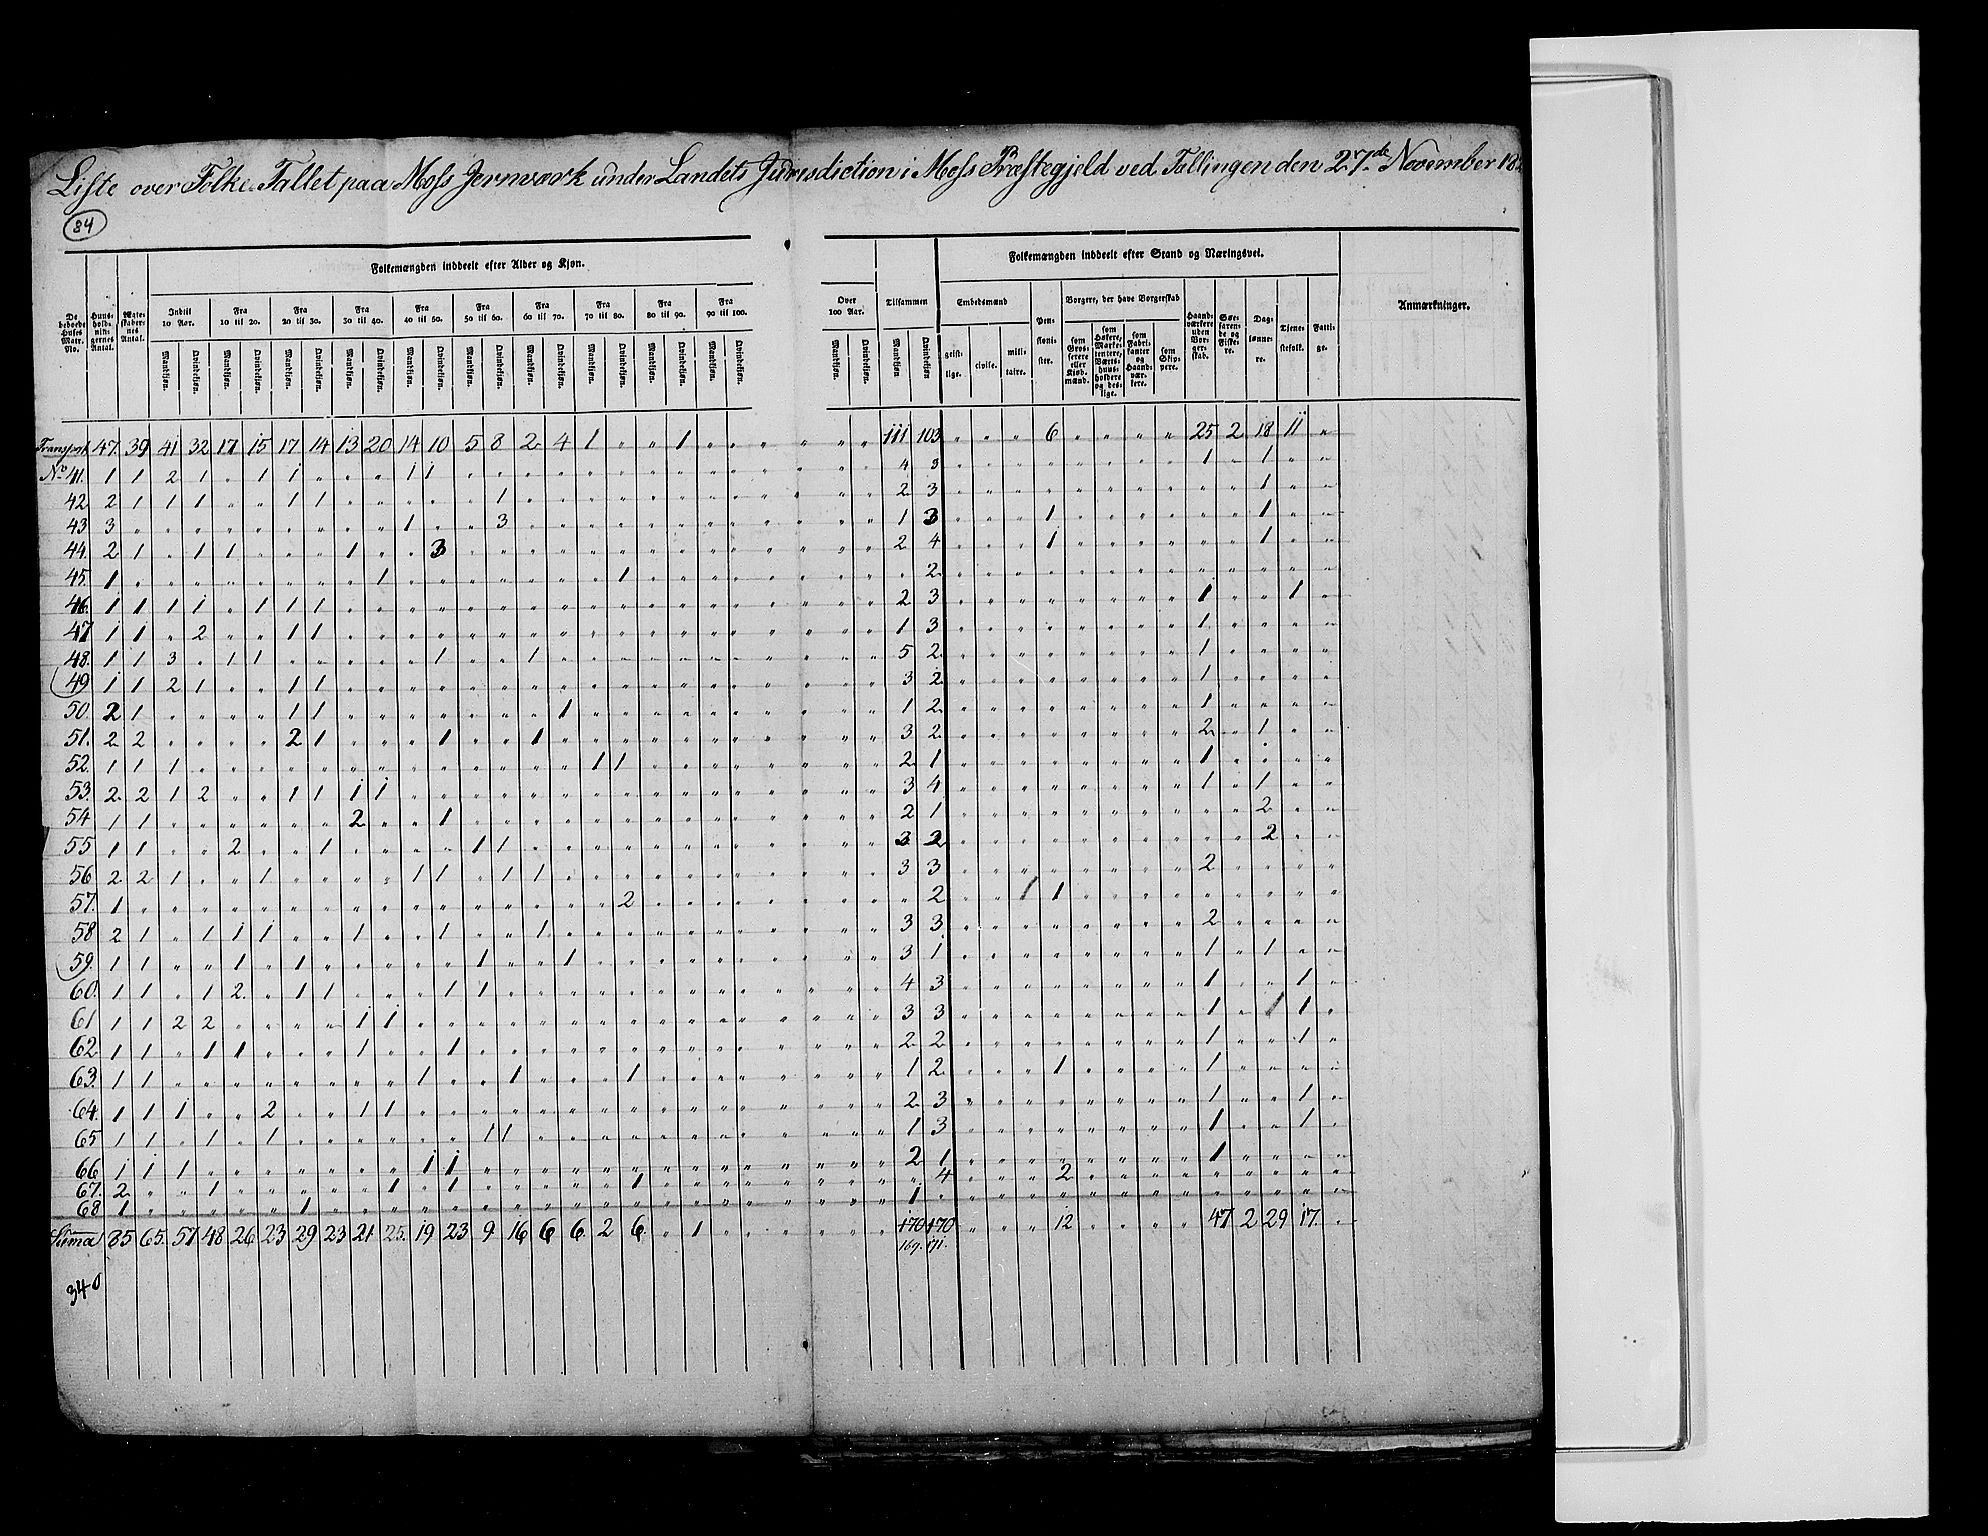 Liste over Folke-Tallet paa Moss Jernværk under Landets Jurisdiction i Moss Præstegjeld ved Tellingen den 27de November 18
84
Folkemængden inddeelt efter Alder og Kjøn.
Folkemængden inddeelt efter Stand og Næringsvei.
De beboede Huses Matr. No.
Huus-holdningernes Antal.
Ægteskabernes Antal.
Indtil 10 Aar.
Fra 10 til 20.
Fra 20 til 30.
Fra 30 til 40.
Fra 40 til 50.
Fra 50 til 60.
Fra 60 til 70.
Fra 70 til 80.
Fra 80 til 90.
Fra 90 til 100.
Over 100 Aar.
Tilsammen
Embedsmænd
Pensionister.
Borgere, der have Borgerskab
Haandværkere uden Borgerskab.
Søefarende og Fiskere.
Daglønnere.
Tjenestefolk.
Fattige.
Anmærkninger.
Mandkjøn. Qvindekjøn. Mandkjøn. Qvindekjøn. Mandkjøn. Qvindekjøn. Mandkjøn. Qvindekjøn. Mandkjøn. Qvindekjøn. Mandkjøn. Qvindekjøn. Mandkjøn. Qvindekjøn. Mandkjøn. Qvindekjøn. Mandkjøn. Qvindekjøn. Mandkjøn. Qvindekjøn. Mandkjøn. Qvindekjøn. Mandkjøn Qvindekjøn
geistlige. civile. militaire.
som Grosserere eller Kjøbmænd.
som Høkere, Marketentere, Værtshuusholdere og deslige.
som Fabrikanter og Haandværkere.
som Skippere.
Transport 47 39 41 32 17 15 17 14 13 20 14 10 5 8 2 4 1 " " 1 " " " " 111 103 " " " 6 " " " " 25 2 18 11 "
No 41. 1 1 2 1 " 1 1 " " " 1 1 " " " " " " " " " " " " 4 3 " " " " " " " " 1 " 1 " "
42 2 1 1 1 " " 1 1 " " " " " 1 " " " " " " " " " " 2 3 " " " " " " " " " " 1 " "
43 3 " " " " " " " " " 1 " " 3 " " " " " " " " " " 1 3 " " " 1 " " " " " " 1 " "
44. 2 1 " 1 1 " " " 1 " " 3 " " " " " " " " " " " " 2 4 " " " 1 " " " " " " 1 " "
45. 1 " " " " " " " " 1 " " " " " " " 1 " " " " " " " 2 " " " " " " " " " " " " "
46. 1 1 1 1 " 1 1 1 " " " " " " " " " " " " " " " " 2 3 " " " " " " " " 1 " " 1 "
47 1 1 " 2 " " 1 1 " " " " " " " " " " " " " " " " 1 3 " " " " " " " " 1 " " " "
48. 1 1 3 " 1 1 " " " " " 1 " " 1 " " " " " " " " " 5 2 " " " " " " " " 1 " " " "
49 1 1 2 1 " " 1 1 " " " " " " " " " " " " " " " " 3 2 " " " " " " " " 1 " " " "
50. 2 1 " " " " 1 1 " " " " " " " 1 " " " " " " " " 1 2 " " " " " " " " 1 " " " "
51. 2 2 " " " " 2 1 " " " 1 " " 1 " " " " " " " " " 3 2 " " " " " " " " 2 " 1 " "
52. 1 1 1 " " " " " " " " " " " " " 1 1 " " " " " " 2 1 " " " " " " " " 1 " " " "
53. 2 2 1 2 " " 1 1 1 1 " " " " " " " " " " " " " " 3 4 " " " " " " " " 1 " 1 " "
54 1 1 " " " " " " 2 " " 1 " " " " " " " " " " " " 2 1 " " " " " " " " " " 2 " "
55 1 1 " " 2 " " 1 " " " " 1 1 " " " " " " " " " " 3 2 " " " " " " " " " " 2 " "
56 2 2 1 " " 1 " " " " 1 1 " 1 1 " " " " " " " " " 3 3 " " " " " " " " 2 " " " "
57. 1 " " " " " " " " " " " " " " " " 2 " " " " " " " 2 " " 1 1 " " " " " " " " "
58 2 1 " 1 1 1 " " 1 " " 1 " " 1 " " " " " " " " " 3 3 " " " " " " " " 2 " " " "
59. 1 1 " " 1 " 1 " " " " " 1 " " 1 " " " " " " " " 3 1 " " " " " " " " 1 " 1 " "
60. 1 1 " 1 2 " 1 1 " " " 1 1 " " " " " " " " " " " 4 3 " " " " " " " " 1 " " 1 "
61 1 1 2 2 " " " " 1 1 " " " " " " " " " " " " " " 3 3 " " " " " " " " 1 " 1 1 "
62 1 1 " 1 1 " " " 1 " " 1 " " " " " " " " " " " " 2 2 " " " " " " " " 1 " " 1 "
63. 1 1 " " " " " " " " 1 " " 1 " " " 1 " " " " " " 1 2 " " " 1 " " " " 1 " " " "
64. 1 1 1 " " 2 " " 1 1 " " " " " " " " " " " " " " 2 3 " " " " " " " " 1 " " 1 "
65 1 1 " 1 " 1 " " " " " " 1 1 " " " " " " " " " " 1 3 " " " " " " " " 1 " " 1 "
66 1 1 1 " " " " " " " 1 1 " " " " " " " " " " " " 2 1 " " " " " " " " 1 " " " "
67. 2 " " 1 " " " " " 1 " 1 " " " " " 1 " " " " " " " 4 " " " 2 " " " " " " " " "
68 1 " " " " " 1 " " " " " " " " " " " " " " " " " 1 " " " " " " " " " " " " " "
Suma 85 65 57 48 26 23 29 23 21 25 19 23 9 16 6 6 2 6 " 1 " " " " 170 170 " " " 12 " " " " 47 2 29 17 "
169. 171.
340